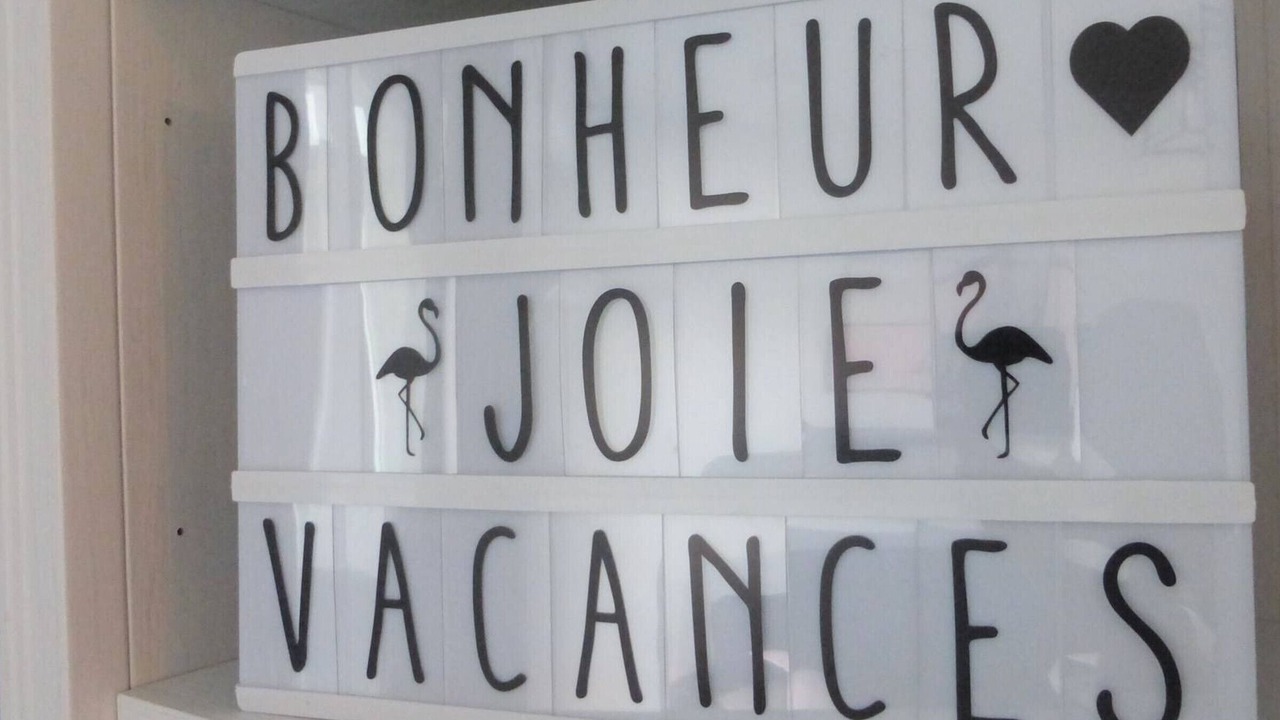 BONHEUR
JOIE
VACANCES